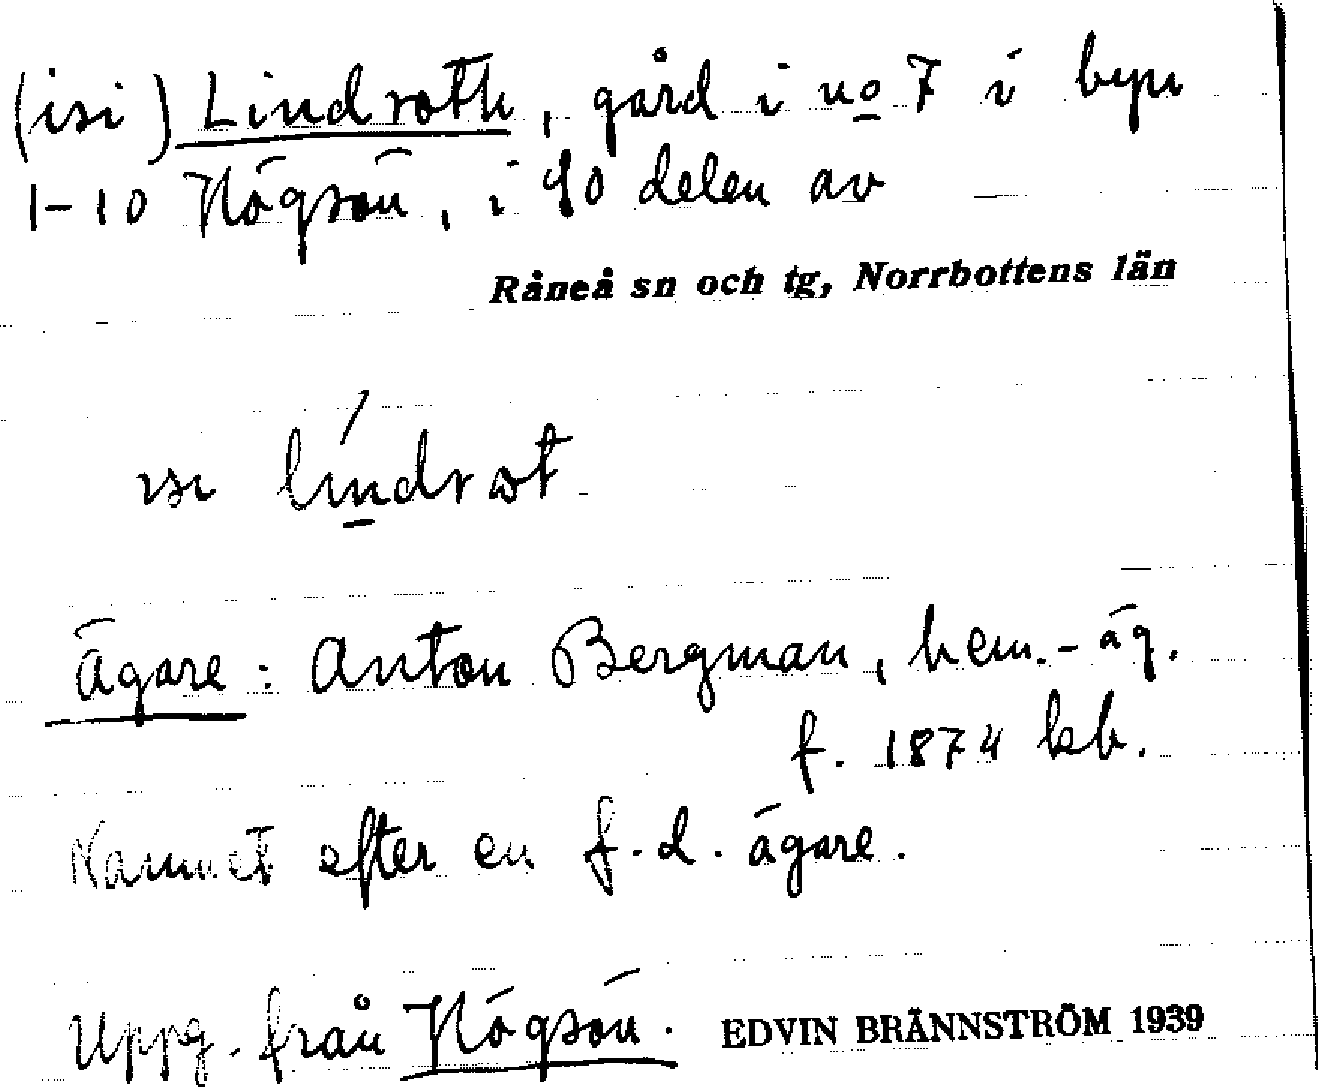 (isi) Lindroth, gård i no 7 i byn
1-10 Högsön, i SO delen av
Råneå sn och tg, Norrbottens län
ısı lindrot
Ägare: Anton Bergman, hem.-äg.
f. 1874 kb.
Namnet efter en f.d. ägare.
Uppg. från Högsön. EDVIN BRÄNNSTRÖM 1939